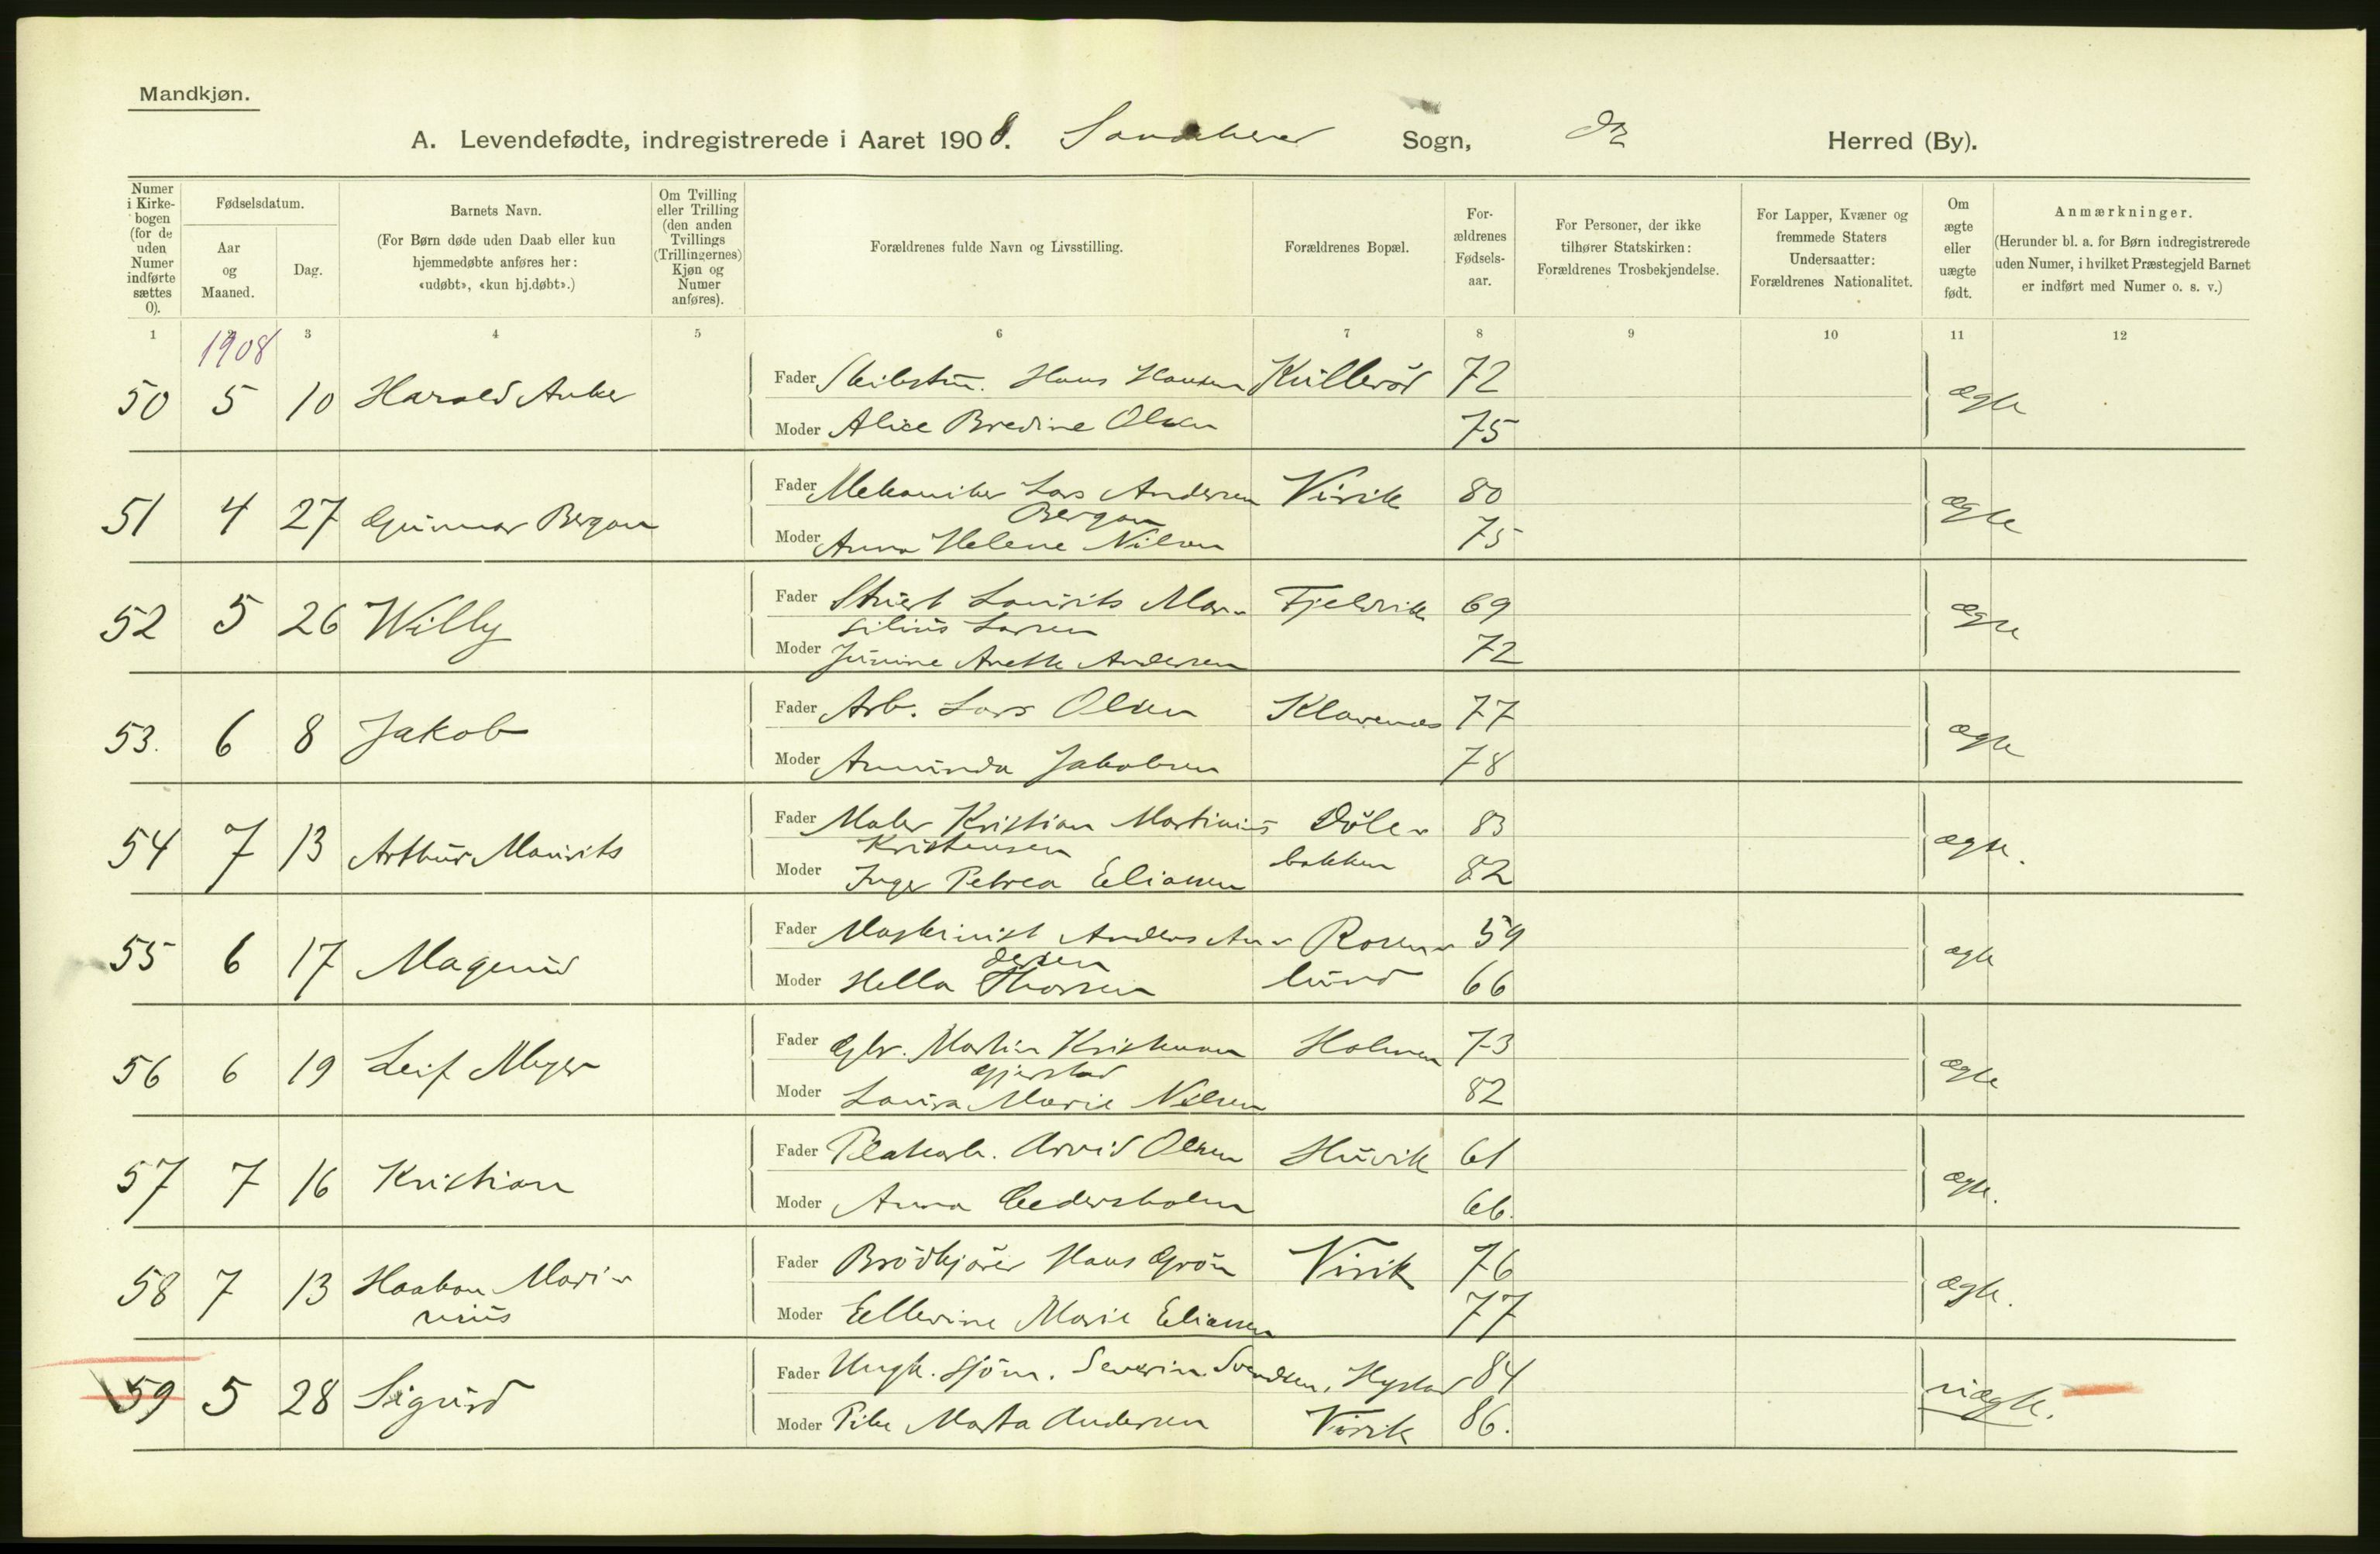 Mandkjøn.
A. Levendefødte, indregistrerede i Aaret 1908. Sandeherred Sogn, Herred (By).
Numer i Kirkebogen (for de uden Numer indførte sættes 0).
Fødselsdatum.
Aar og Maaned.
Dag.
Barnets Navn.
(For Børn døde uden Daab eller kun hjemmedøbte anføres her: «udøbt», «kun hj.døbt».)
Om Tvilling eller Trilling (den anden Tvillings (Trillingernes) Kjøn og Numer anføres).
Forældrenes fulde Navn og Livsstilling.
Forældrenes Bopæl.
For-ældrenes Fødsels-aar.
For Personer, der ikke tilhører Statskirken: Forældrenes Trosbekjendelse.
For Lapper, Kvæner og fremmede Staters Undersaatter: Forældrenes Nationalitet.
Om ægte eller uægte født.
Anmærkninger.
(Herunder bl. a. for Børn indregistrerede uden Numer, i hvilket Præstegjeld Barnet er indført med Numer o. s. v.)
1 3 4 5 6 7 8 9 10 11 12
1908
50 5 10 Harald Anker Fader Hans Hansen Kullerød 72 ægte
Moder Alice Bredine Olsen 75
51 4 27 Gunnar Bergan Fader Mekaniker Lars Andersen Virik 80 ægte
Bergan
Moder Anna Helene Nilsen 75
52 5 26 Willy Fader Stuert Laurits Mar- Fjeldvik 69 ægte
silius Larsen
Moder Junine Anette Andersen 72
53. 6 8 Jakob Fader Arb. Lars Olsen Klavenæs 77 ægte
Moder Amunda Jakobsen 78
54 7 13 Arthur Maurits Fader Maler Kristian Martinius Döle- 83 ægte.
Kristensen
Moder Inga Petrea Eliassen bakken 82
55 6 17 Magnus Fader Maskinist Anders An- Rosen- 59 ægte
dersen
Moder Hella Thorsen lund 66
56 6 19 Leif Meyer Fader Gbr. Martin Kristensen Holmen 73 ægte
Gjerstad
Moder Laura Marie Nilsen 82
57 7 16 Kristian Fader Arvid Olsen Huvik 61 ægte.
Moder Anna Cedersholm 66.
58 7 13 Haakon Mari- Fader Brödkjører Hans Grön Virik 76 ægte.
nius
Moder Ellevine Marie Eliassen 77
59 5 28 Sigurd Fader Ungk. Sjöm. Severin Svendsen, Hystad 84 uægte.
Moder Pike Marta Andersen Virik 86.